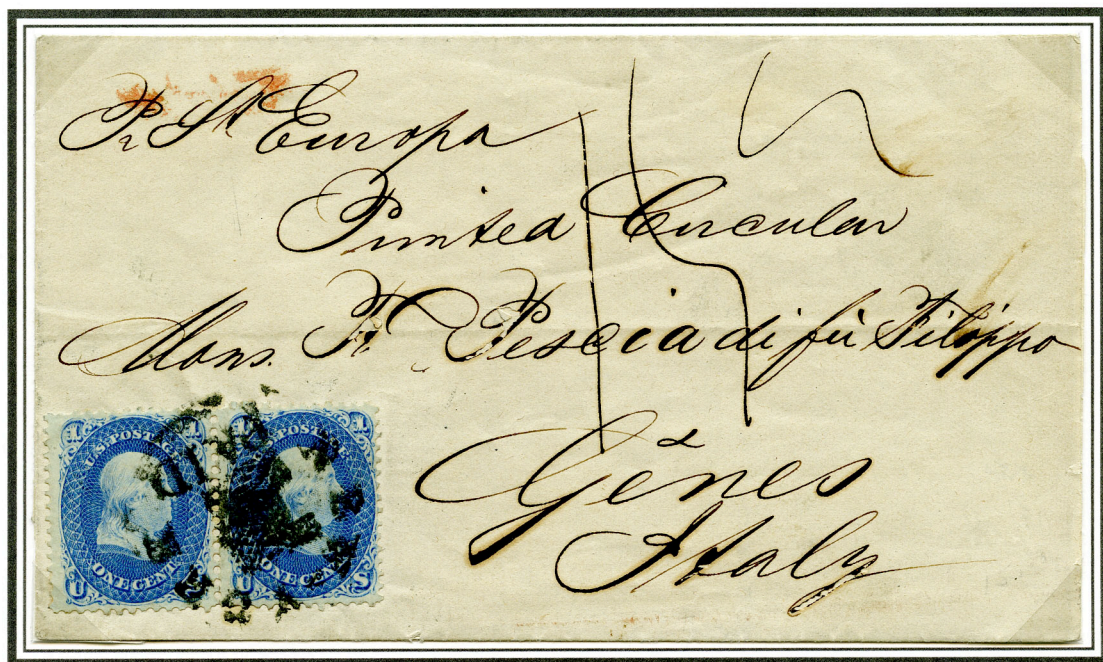 Pr Str Europa
Printed Circular
Mons. F. Pescia di fù Filippo
Gênes
Italy
15
1 1
U.S. POSTAGE
ONE CENT
U S
1 1
U.S. POSTAGE
ONE CENT
U S
PAID